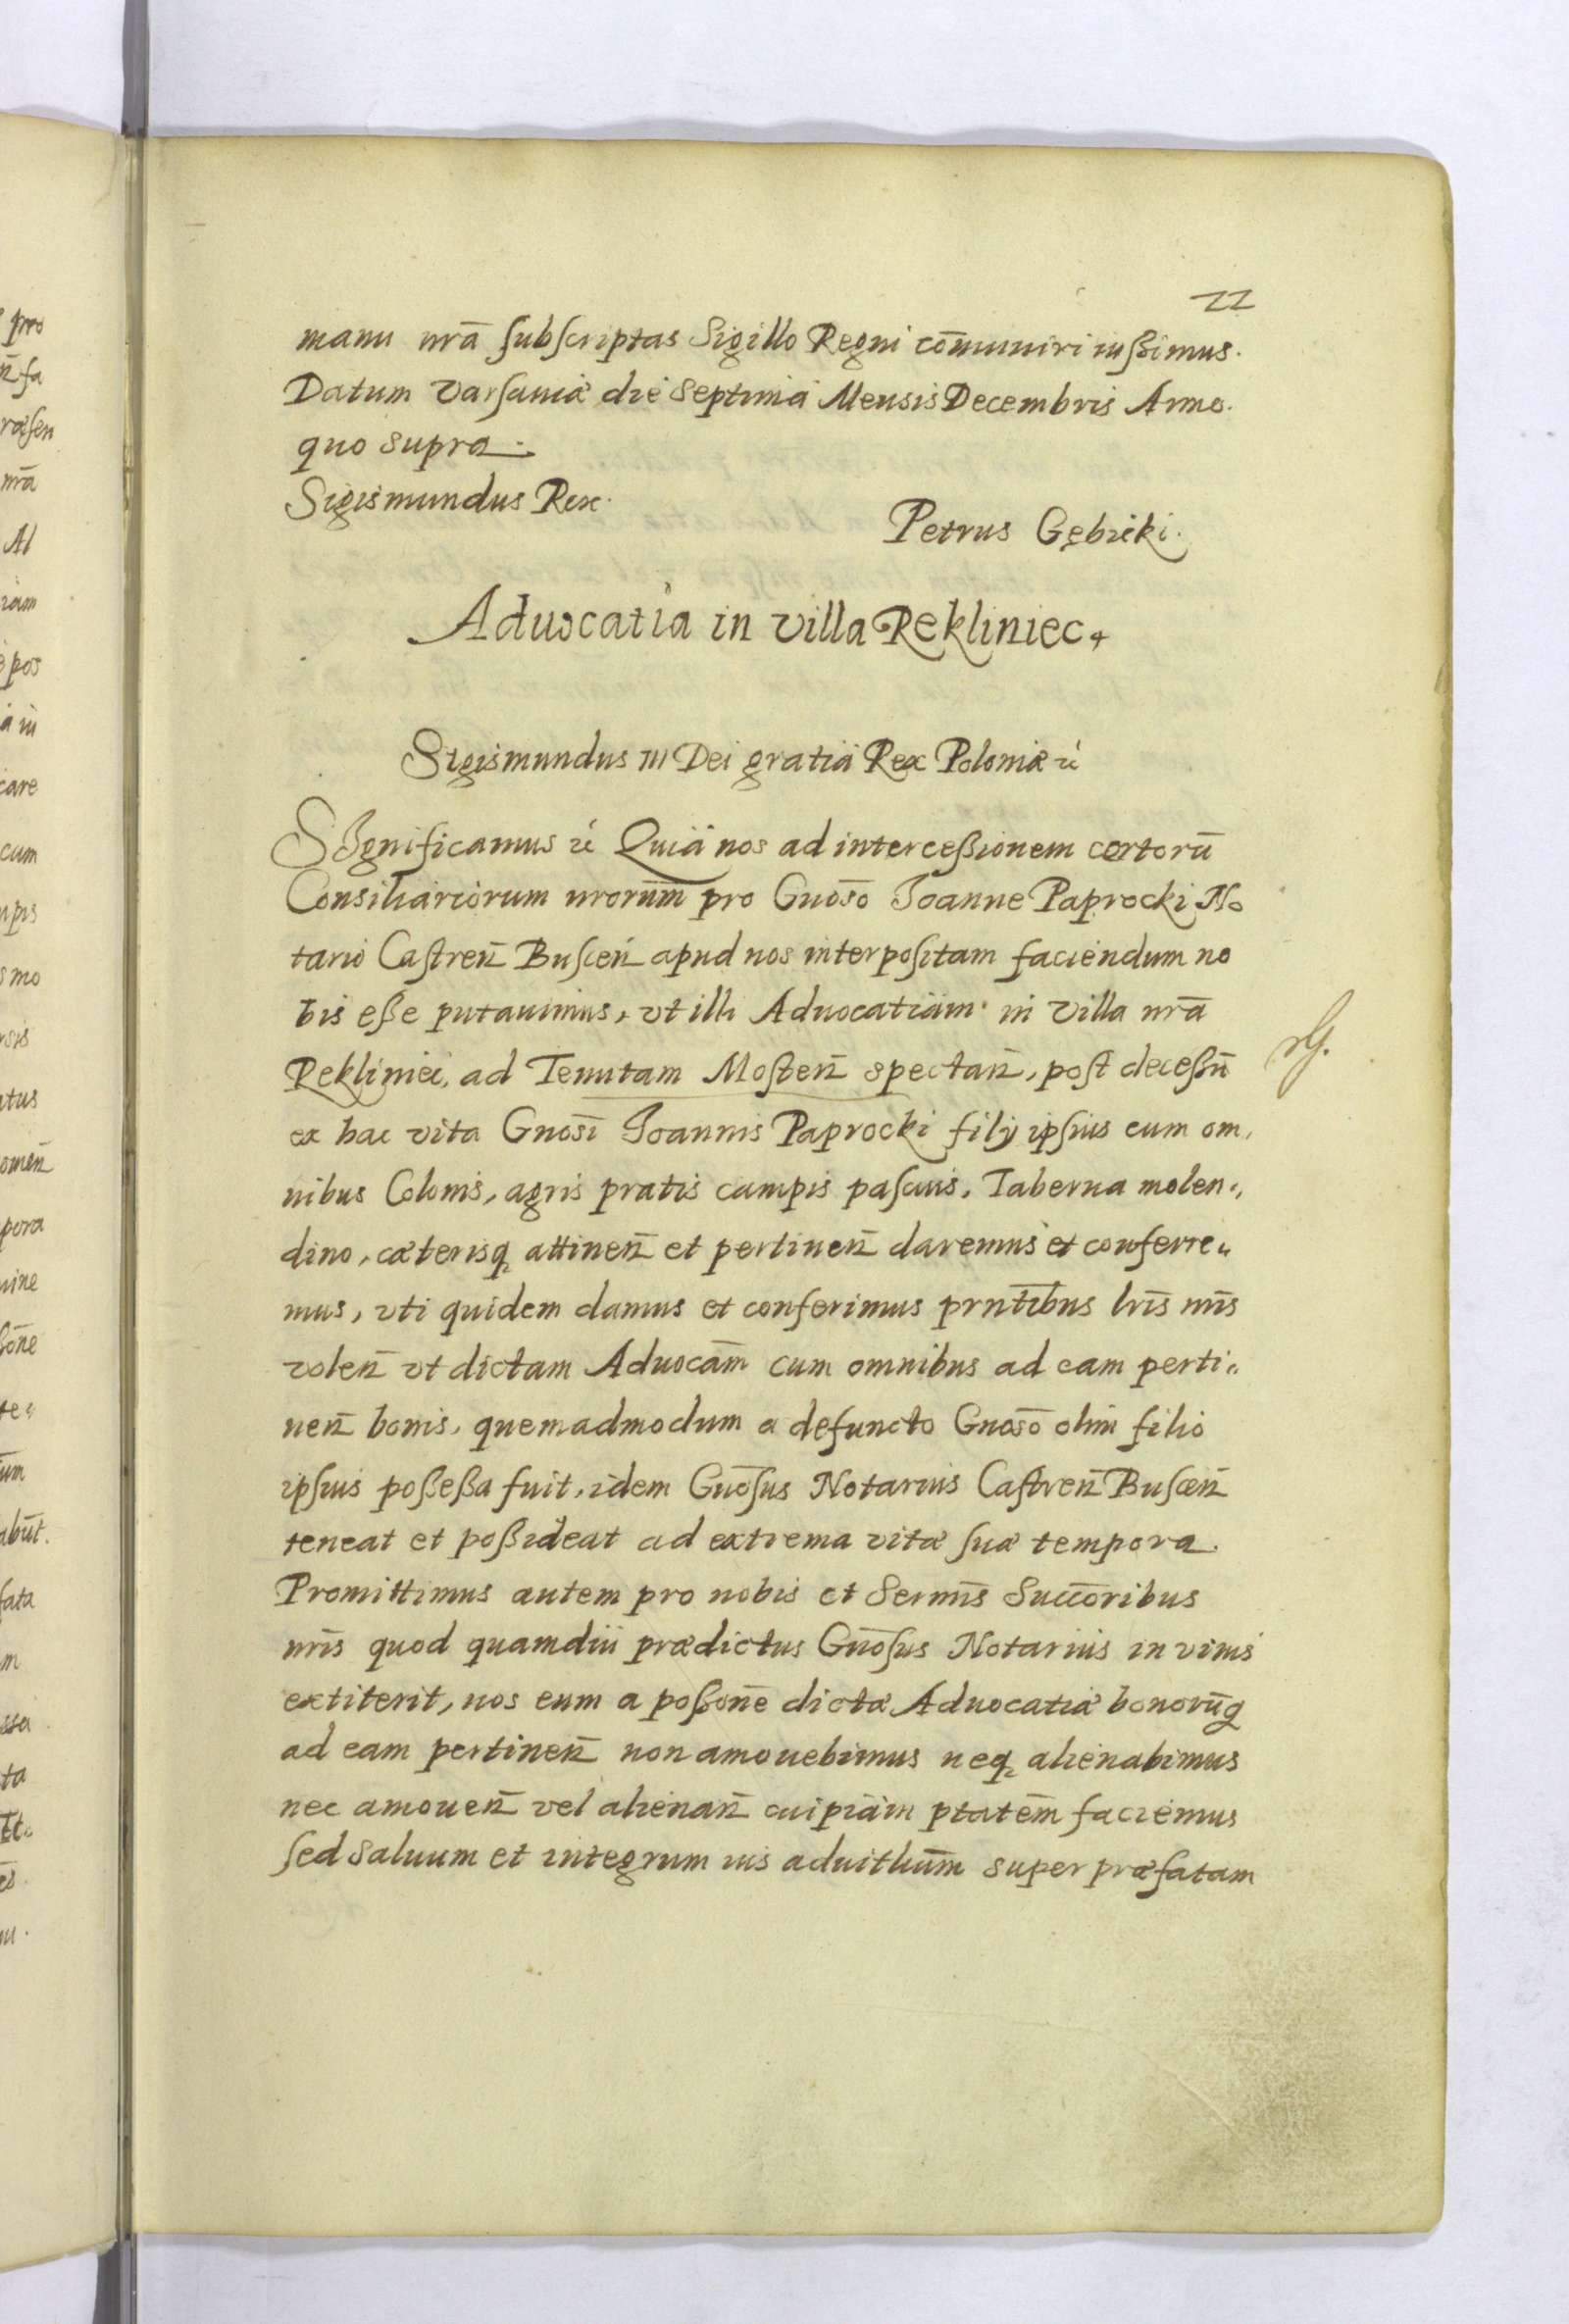 22
manu nrā subscriptas Sigillo Regni cōmuniri iussimus.
Datum Varsaviæ die septima Mensis Decembris Anno.
quo supra.
Sigismundus Rex.
Petrus Gębicki.
Aduocatia in villa Rekliniec
Sigismundus III Dei gratia Rex Poloniæ &c
SIgnificamus &c Quia nos ad intercessionem certorū
Consiliariorum nrorum̄ pro Gnoso̅ Joanne Paprocki No
tario Castren̄ Buscen̄ apud nos interpositam faciendum no
bis esse putauimus, vt illi Aduocatiam in villa nrā
Rekliniec, ad Tenutam Mosten̄ spectan̄, post decessū
ex hac vita Gnosī Joannis Paprocki filij ipsius cum om,
nibus Colonis, agris pratis campis pascuis, Taberna molen„
dino, cæterisq, attinen̄ et pertinen̄ daremus et conferre„
mus, vti quidem damus et conferimus prntībus lrīs nrīs
volen̄ vt dictam Aduocām cum omnibus ad eam perti„
nen̄ bonis, quemadmodum a defuncto Gnosō olim filio
ipsius possessa fuit, idem Gnōsus Notarius Castren̄ Buscen̄
teneat et possideat ad extrema vitæ suæ tempora.
Promittimus autem pro nobis et Sermīs Succōribus
nrīs quod quamdiu prædictus Gnōsus Notarius in viuis
extiterit, nos eum a possōne dictæ Aduocatiæ bonorūq
ad eam pertinen̄ non amouebimus neq, alienabimus
nec amouen̄ vel alienan̄ cuipiam ptatēm faciemus
sed saluum et integrum ius aduitlūm super præfatam